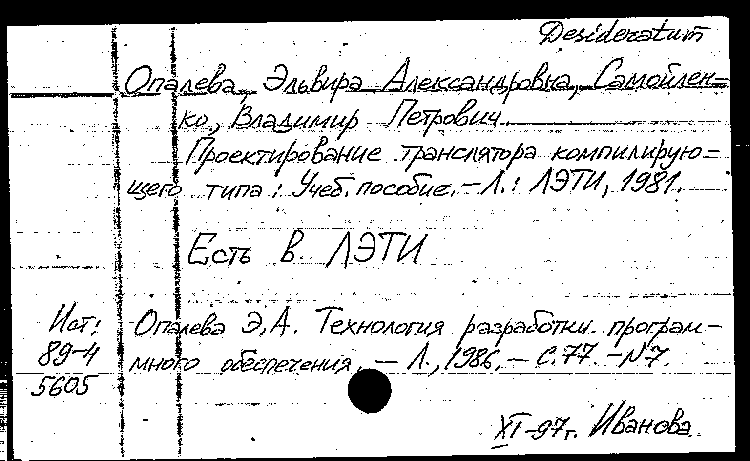 Desideratum
Опалева, Эльвира Александровна, Самойлен=
ко, Владимир Петрович
Проектирование транслятора компилирую=
щего типа: Учеб. пособие. – Л.: ЛЭТИ, 1981.
Есть в ЛЭТИ
Ист: Опалева Э.А. Технология разработки програм-
89-4 много обеспечения. – Л., 1986. – С.77. – N7.
5605
XI-97г. Иванова